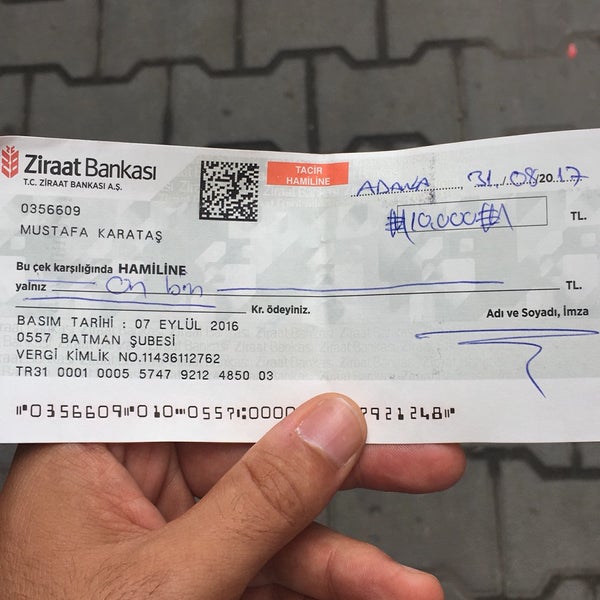 Ziraat Bankası
T.C. ZİRAAT BANKASI A.Ş.
TACİR
HAMİLİNE
ADANA 31/08/2017
0356609
#10.000# TL.
MUSTAFA KARATAŞ
Bu çek karşılığında HAMİLİNE
yalnız On bin TL.
Kr. ödeyiniz.
Adı ve Soyadı, İmza
BASIM TARİHİ : 07 EYLÜL 2016
0557 BATMAN ŞUBESİ
VERGİ KİMLİK NO.11436112762
TR31 0001 0005 5747 9212 4850 03
⑈0356609⑈010⑉0557⑆0000 7921248⑈